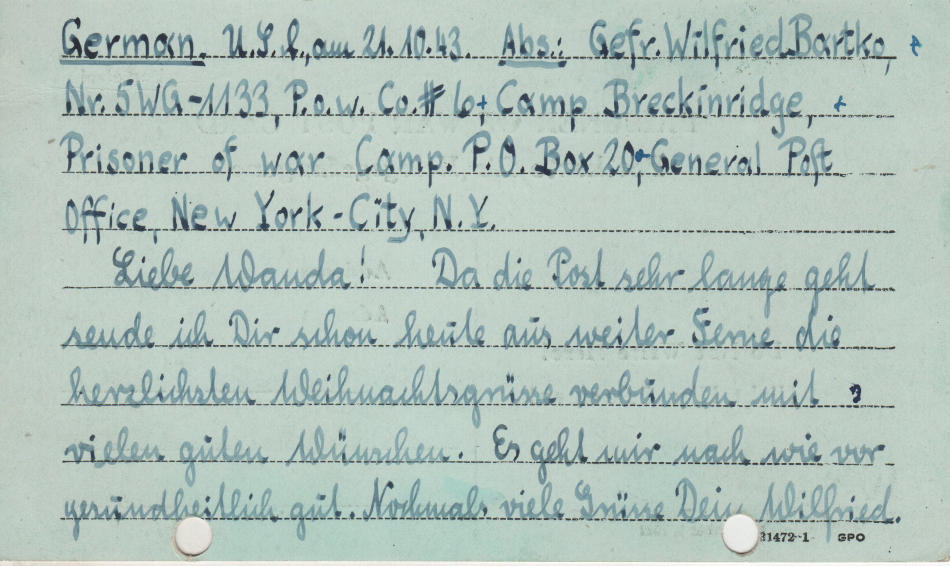 German. U.S.A., am 21.10.43. Abs.: Gefr. Wilfried Bartko,
Nr. 5WG-1133, P.o.w. Co.# 6, Camp Breckinridge,
Prisoner of war Camp. P.O. Box 20, General Post
Office, New York-City, N.Y.
Liebe Wanda! Da die Post sehr lange geht
sende ich Dir schon heute aus weiter Ferne die
herzlichsten Weihnachtsgrüsse verbunden mit
vielen guten Wünschen. Es geht mir nach wie vor
gesundheitlich gut. Nochmals viele Grüsse Dein Wilfried.
21472-1 GPO